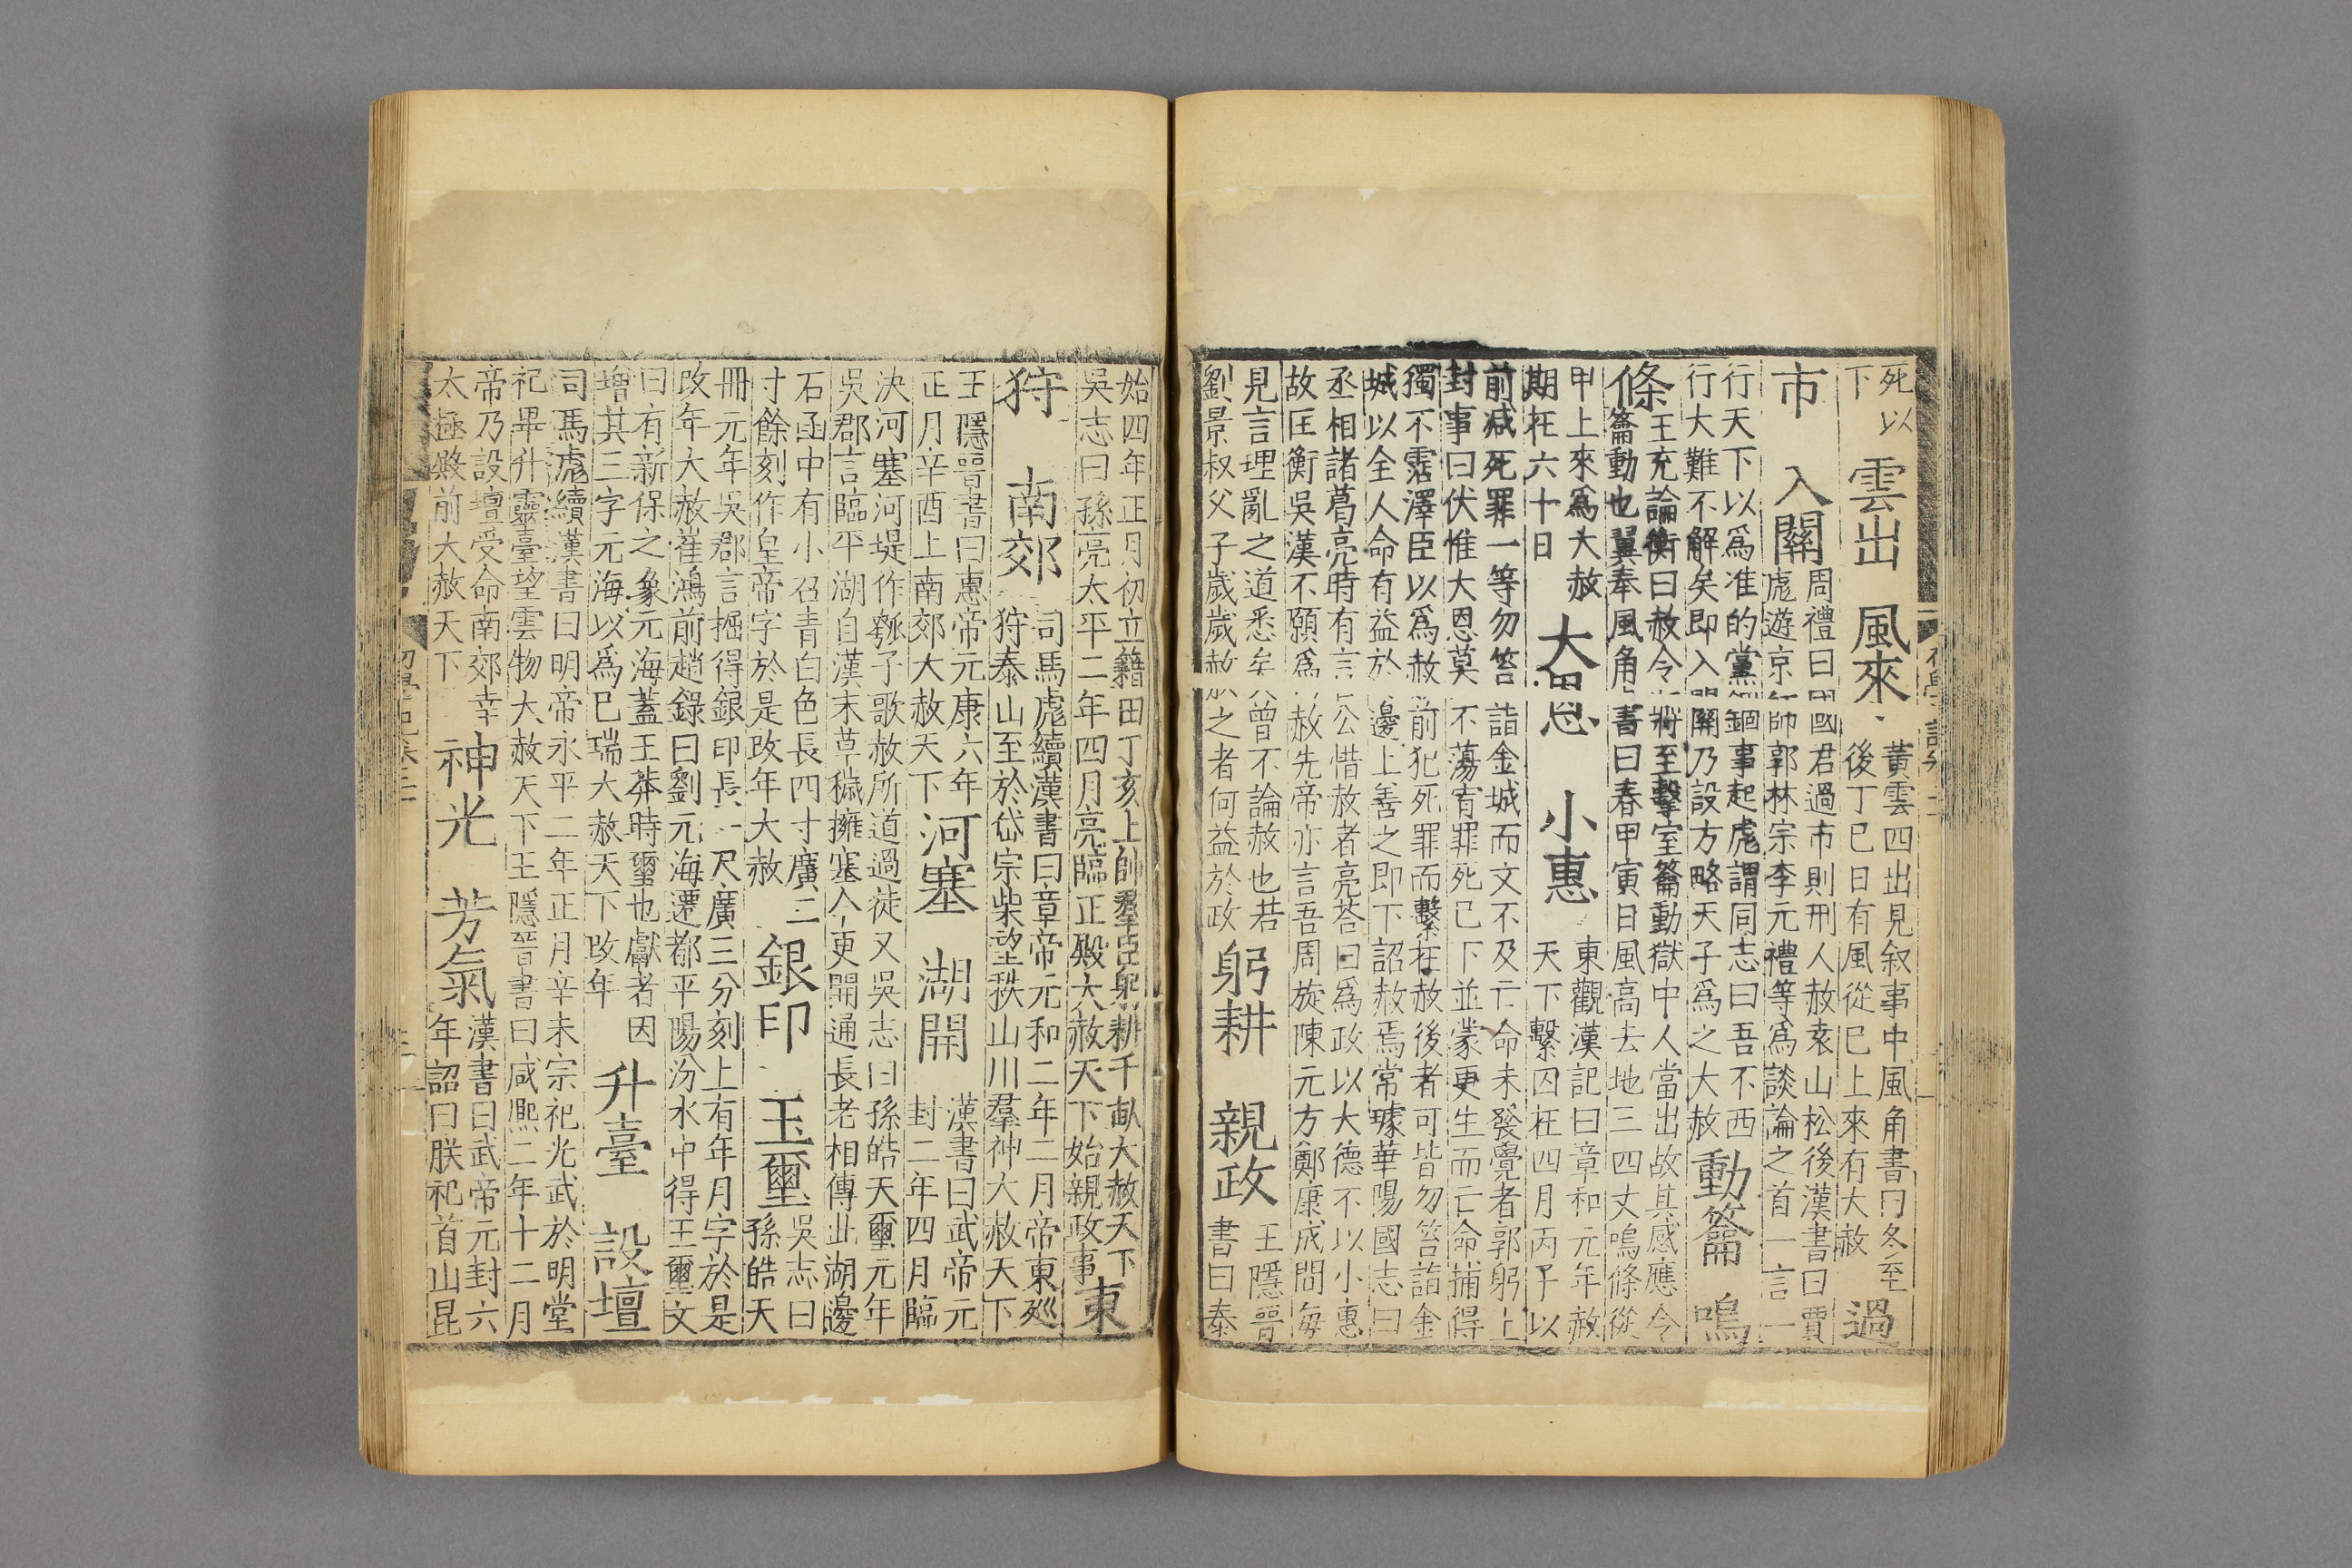 死以下 雲出 風來 黃雲四出見叙事中風角書曰冬至後丁巳日有風從巳上來有大赦 過
市 入關 周禮曰國君過市則刑人赦袁山松後漢書曰賈彪遊京師郭林宗李元禮等爲談論之首一言一
行天下以爲准的黨錮事起彪謂同志曰吾不西行大難不解矣即入關乃設方略天子爲之大赦 動籥 鳴
條 王充論衡曰赦令將至擊室籥動獄中人當出故其感應令籥動也翼奉風角書曰春甲寅日風高去地三四丈鳴條從
甲上來爲大赦期在六十日 大恩 小惠 東觀漢記曰章和元年赦天下繫囚在四月丙子以
前减死罪一等勿笞詣金城而文不及亡命未發覺者郭躬上
封事曰伏惟大恩莫不蕩宥罪死已下並蒙更生而亡命捕得
獨不霑澤臣以爲赦前犯死罪而繫在赦後者可皆勿笞詣金
城以全人命有益於邊上善之即下詔赦焉常璩華陽國志曰
丞相諸葛亮時有言公惜赦者亮荅曰爲政以大德不以小惠
故匡衡吳漢不願爲赦先帝亦言吾周旋陳元方鄭康成間每
見言理亂之道悉矣曾不論赦也若劉景叔父子歲歲赦之者何益於政 躬耕 親政 王隱晉書曰泰
始四年正月初立籍田丁亥上帥羣臣躬耕千畝大赦天下吳志曰孫亮太平二年四月亮臨正殿大赦天下始親政事 東
狩 南郊 司馬彪續漢書曰章帝元和二年二月帝東巡狩泰山至於岱宗柴望秩山川羣神大赦天下
王隱晉書曰惠帝元康六年正月辛酉上南郊大赦天下 河塞 湖開 漢書曰武帝元封二年四月臨
決河塞河堤作瓠子歌赦所過徒又吳志曰孫皓天璽元年
吳郡言臨平湖自漢末草穢擁塞今更開通長老相傳此湖邊
石函中有小召青白色長四寸廣二寸餘刻作皇帝字於是改年大赦 銀印 玉璽 吳志曰孫皓天
冊元年吳郡言掘得銀印長一尺廣三分刻上有年月字於是
改年大赦崔鴻前趙錄曰劉元海遷都平陽汾水中得玉璽文
曰有新保之象元海蓋王莽時璽也獻者因增其三字元海以爲已瑞大赦天下改年 升臺 設壇
司馬彪續漢書曰明帝永平二年正月辛未宗祀光武於明堂
祀畢升靈臺望雲物大赦天下王隱晉書曰咸熙二年十二月
帝乃設壇受命南郊幸太極殿前大赦天下 神光 芳氣 漢書曰武帝元封六年詔曰朕祀首山昆